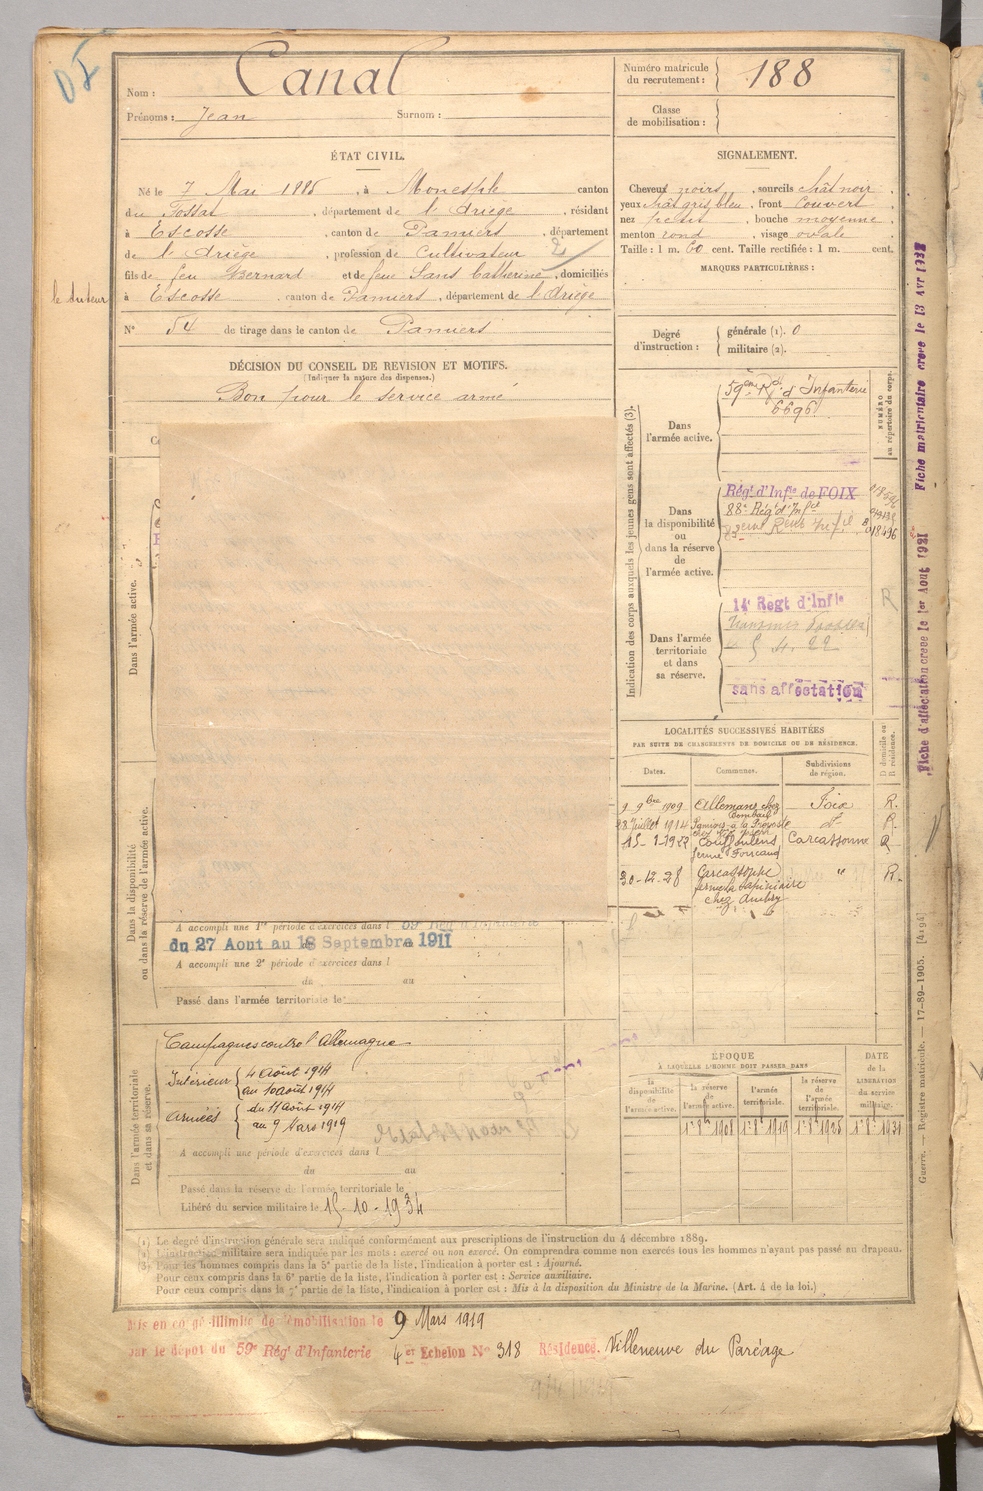 Nom : Canal
Prénoms : Jean Surnom :
Numéro matricule du recrutement : 188
Classe de mobilisation :
ÉTAT CIVIL.
Né le 7 Mai 1885, à Monesple canton
du Fossat, département de l'Ariège, résidant
à Escosse, canton de Pamiers, département
de l'Ariège, profession de Cultivateur
fils de feu Bernard et de feue Sans Catherine, domiciliés
le tuteur
à Escosse canton de Pamiers, département de l'Ariège
N° 54 de tirage dans le canton de Pamiers
SIGNALEMENT.
Cheveux noirs, sourcils chât noir,
yeux chât gris bleu, front couvert,
nez petit, bouche moyenne,
menton rond, visage ovale.
Taille : 1 m. 60 cent. Taille rectifiée : 1 m. cent.
MARQUES PARTICULIÈRES :
Degré d'instruction : générale (1). 0
militaire (2).
DÉCISION DU CONSEIL DE REVISION ET MOTIFS.
(Indiquer la nature des dispenses.)
Bon pour le service armé
Dans l'armée active.
Dans la disponibilité
ou dans la réserve de l'armée active.
A accompli une 1re période d'exercices dans l 59 Rég d'Infanterie
du 27 Aout au 18 Septembre 1911
A accompli une 2e période d'exercices dans l
du au
Passé dans l'armée territoriale le
Dans l'armée territoriale
et dans sa réserve.
Campagnes contre l'Allemagne
Intérieur { 4 août 1914
au 10 août 1914
Armées { du 11 août 1914
au 9 Mars 1919
A accompli une période d'exercices dans l
du au
Passé dans la réserve de l'armée territoriale le
Libéré du service militaire le 15-10-1934
Indication des corps auxquels les jeunes gens sont affectés (3).
NUMÉRO
au répertoire du corps.
Dans
l'armée active.
59ème Rgt d'Infanterie
6696
Dans
la disponibilité
ou
dans la réserve
de
l'armée active.
Régt d'Infie de FOIX
88e Rég d'Infie
018496
Dans l'armée
territoriale
et dans
sa réserve.
14e Régt d'Infie
5 4. 22
sans affectation
R
LOCALITÉS SUCCESSIVES HABITÉES
PAR SUITE DE CHANGEMENTS DE DOMICILE OU DE RÉSIDENCE.
Dates. Communes. Subdivisions de région. D domicile ou R résidence.
9 9bre 1909 Allemans chez Foix R.
28 Juillet 1914 Pamiers à la d° R.
15-1-1927 Couffoulens Carcassonne R
ferme Fourcaud
30-12-28 Carcassonne " R.
chez Aubry
ÉPOQUE
À LAQUELLE L'HOMME DOIT PASSER DANS
DATE
de la
LIBÉRATION
du service
militaire.
la disponibilité de l'armée active. la réserve de l'armée active. l'armée territoriale. la réserve de l'armée territoriale.
1r 8bre 1908 1r 8bre 1919 1r 8bre 1925 1r 8bre 1931
(1) Le degré d'instruction générale sera indiqué conformément aux prescriptions de l'instruction du 4 décembre 1889.
(2) L'instruction militaire sera indiquée par les mots : exercé ou non exercé. On comprendra comme non exercés tous les hommes n'ayant pas passé au drapeau.
(3) Pour les hommes compris dans la 5e partie de la liste, l'indication à porter est : Ajourné.
Pour ceux compris dans la 6e partie de la liste, l'indication à porter est : Service auxiliaire.
Pour ceux compris dans la 7e partie de la liste, l'indication à porter est : Mis à la disposition du Ministre de la Marine. (Art. 4 de la loi.)
Mis en congé illimité de démobilisation le 9 Mars 1919
par le dépôt du 59e Régt d'Infanterie 4er Echelon N° 318 Résidence. Villeneuve du Paréage
Fiche d'affectation creee le 1er Aout 1921
Fiche matriculaire creee le 13 Avr 1932
Guerre. — Registre matricule. — 17-89-1905. [4194]